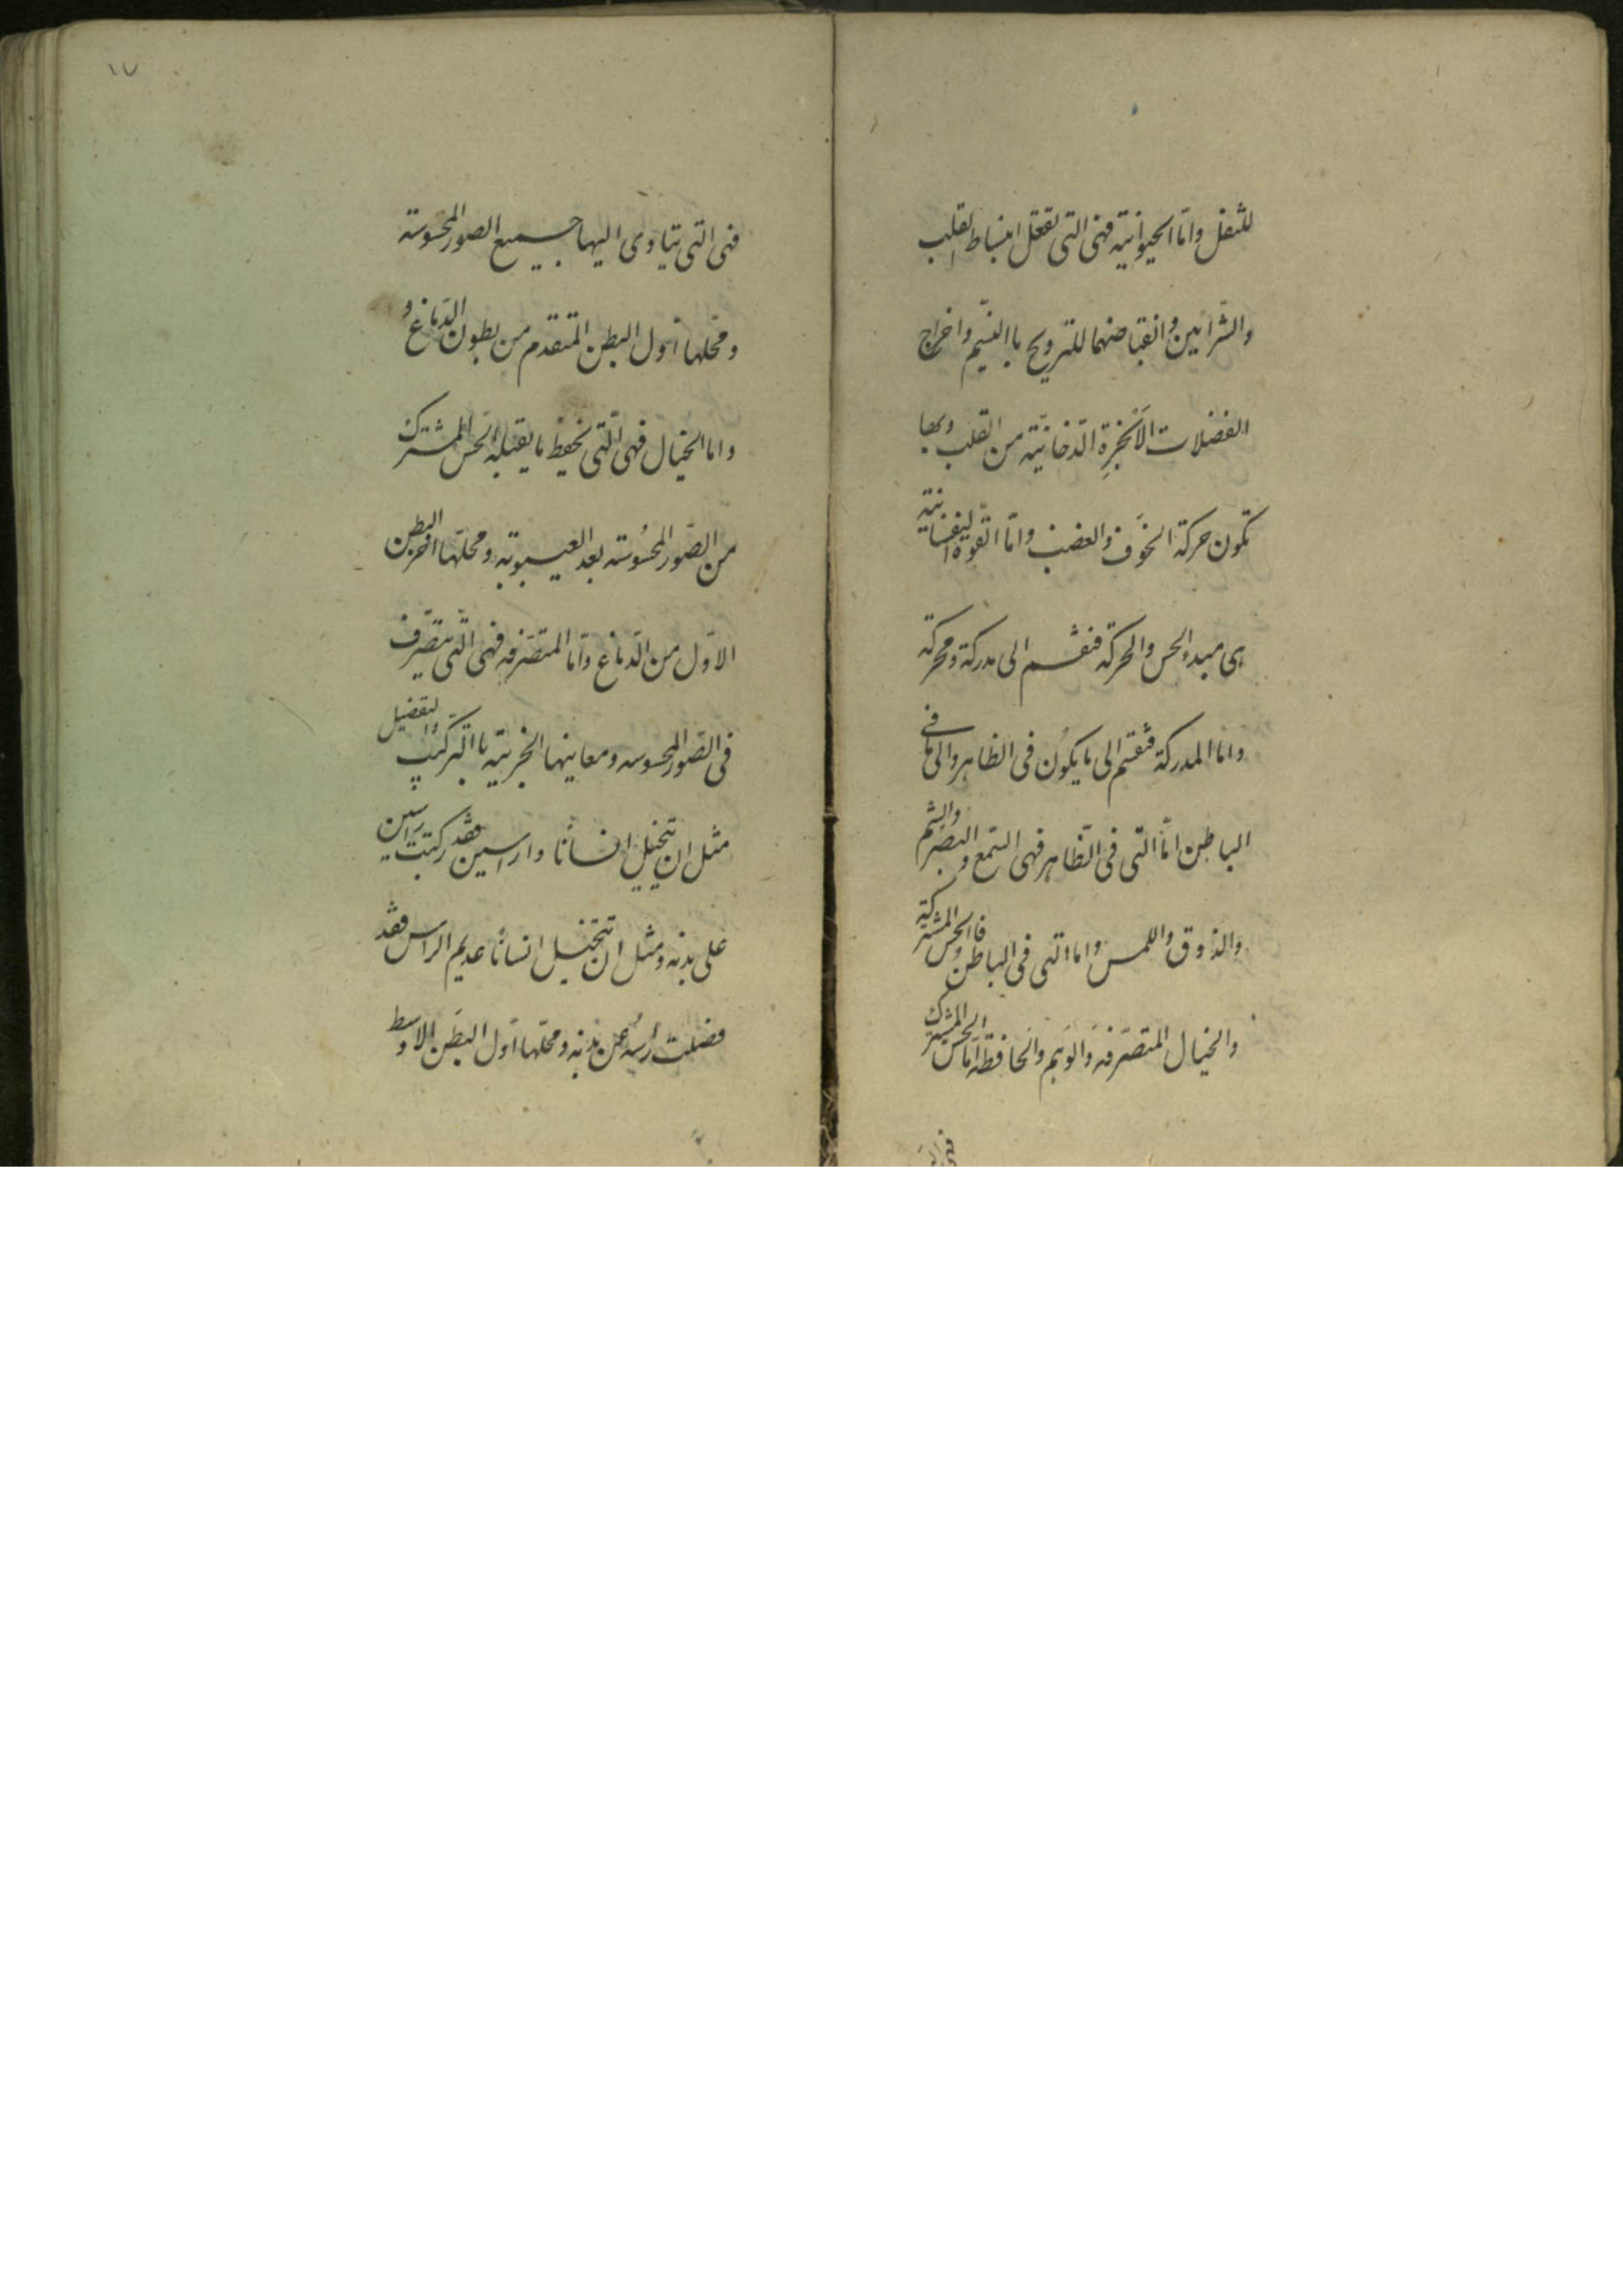 للثفل وامّا الحيوانية فهى التى تفعل انبساط القلب
والشرايين وانقباضهما للترويح باالنسيم واخراج
الفضلات الأبخرةِ الدّخانيّة من القلب وبها
تكون حركة الخوف والغضب وامّا القوة النفسانية
هى مبدء الحس والحركة فنقسم الى مدركة ومحركة
واما المدركة فنقسم الى ما يكون فى الظاهر والى ما فى
الباطن امّا التى فى الظاهر فهى السّمع والبصر والشم
والذوق واللمس واما التى فى الباطن فاالحس المشتركة
والخيال المتصّرفه والوهم والحافظة امّا الحس المشترك
فهى التى
١٧
فهى التى يتاوى اليها جميع الصور المحسوسة
ومحلّها أوّل البطن المتقدم من بطون الدّماغ و
واما الخيال فهى الّتى تحفظ ما يقبله الحس المشترك
من الصّور المحسُوسة بعد الغيبوبة ومحلّها اخر البطن
الاوّل من الدّماغ وامّا المتصّرفه فهى الّتى يتصّرف
فى الصّور المحسوسه ومعاينها الجزيّية باالتركيب والتفضيل
مثل ان يتخيل انسانًا وا راسين فقد ركبت راسين
على بدنه ومثل ان تتخيل انسانًا عديم الراس فقد
فضلت رأسه عن بدنه ومحلّها اوّل البطن الاوسط